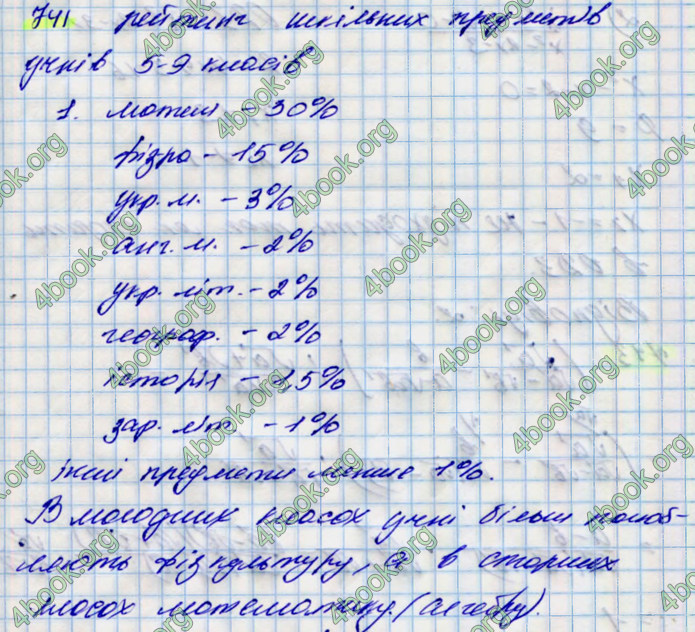 741 рейтинг шкільних предметів
учнів 5-9 класів
1. матем - 30%
фізра - 15%
укр. м. - 3%
анг. м. - 2%
укр. літ. - 2%
географ. - 2%
історія - 1,5%
зар. літ. - 1%
інші предмети менше 1%.
В молодших класах учні більш полюб-
ляють фізкультуру, а в старших
класах математику (алгебру).
4book.org